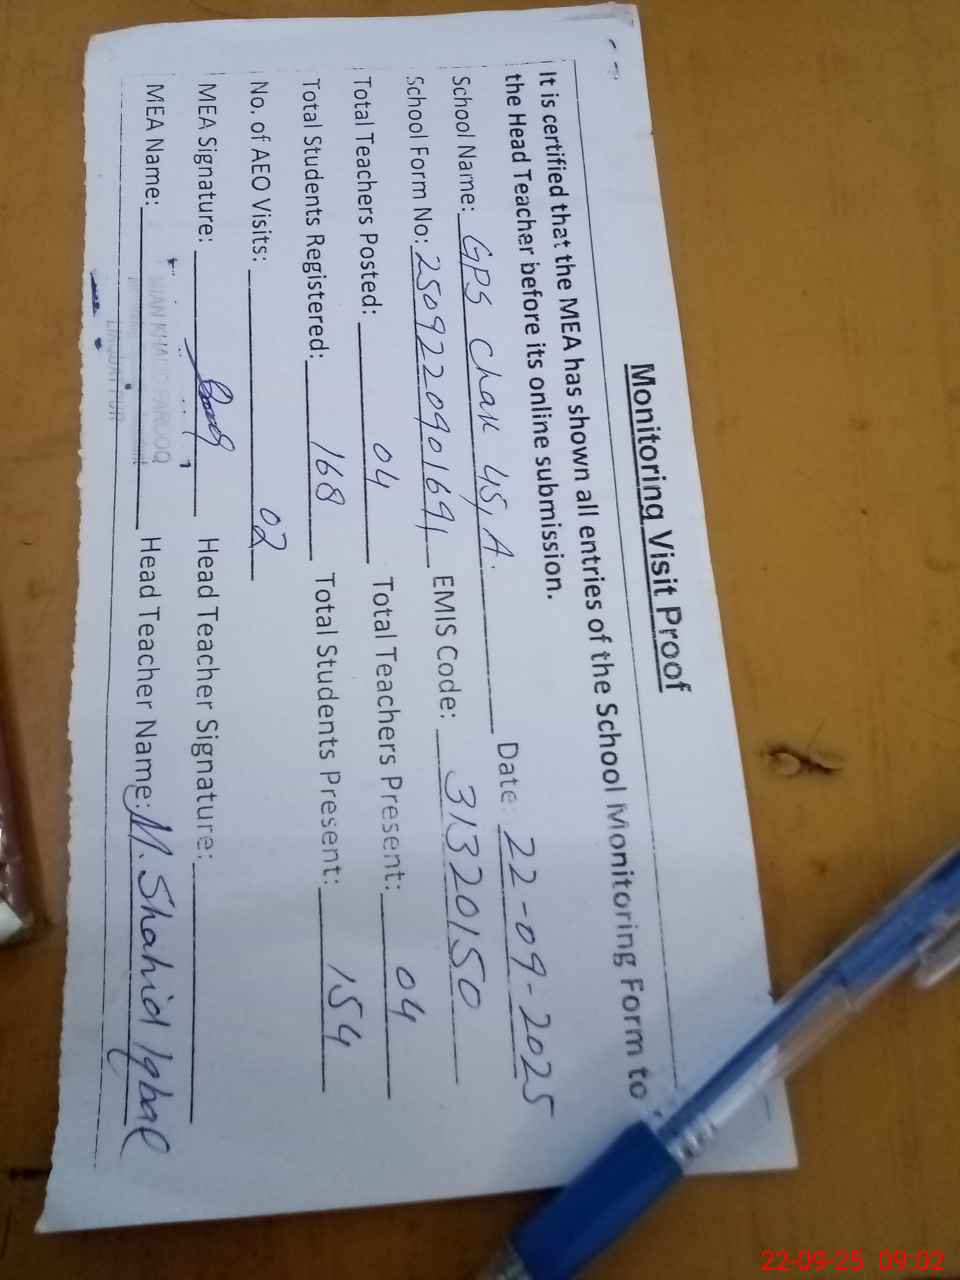 Monitoring Visit Proof
It is certified that the MEA has shown all entries of the School Monitoring Form to
the Head Teacher before its online submission.
School Name: GPS Chak 45, A. Date: 22-09-2025
School Form No: 2509220901691 EMIS Code: 31320150
Total Teachers Posted: 04 Total Teachers Present: 04
Total Students Registered: 168 Total Students Present: 154
No. of AEO Visits: 02
MEA Signature: Head Teacher Signature:
MEA Name: Head Teacher Name: M. Shahid Iqbal
FAROOQ
22-09-25 09:02